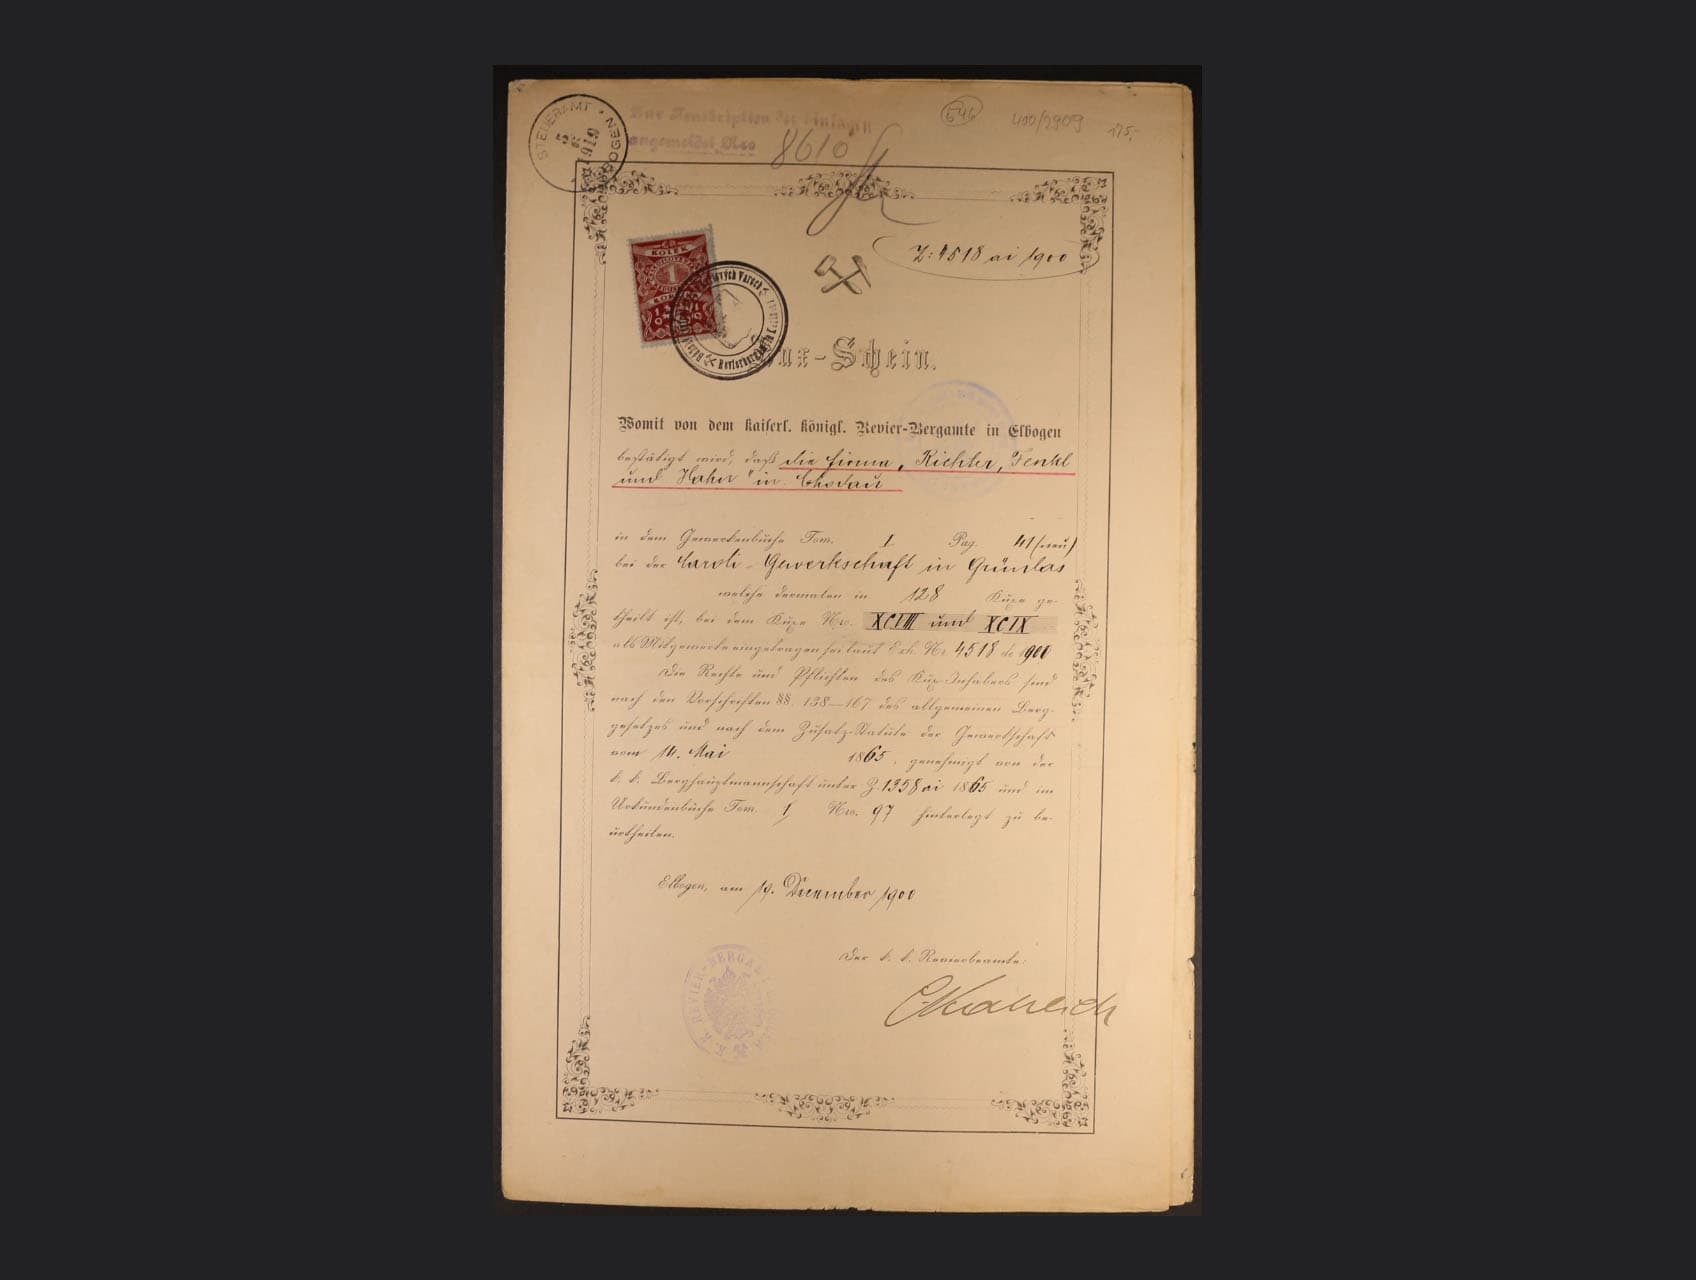 STEUERAMT ELBOGEN
1919
Zur Konskription der Einlagen
angemeldet Nro
8610
646
400/2909
175,-
Z: 4518 ai 1900
KOLEK
1
Kux-Schein.
Womit von dem kaiserl. königl. Revier-Bergamte in Elbogen
bestätigt wird, daß die Firma „Richter, Fenkl
und Hahn" in Chodau
in dem Gewerkenbuche Tom. I Pag. 41 (neu)
bei der Caroli-Gewerkschaft in Grünlas
welche dermalen in 128 Kuxe ge-
theilt ist, bei dem Kuxe Nr. XCVIII und XCIX
als Mitgewerke eingetragen sei laut Exh. Nr. 4518 de 1900
Die Rechte und Pflichten des Kux-Inhabers sind
nach den Vorschriften §§. 138–167 des allgemeinen Berg-
gesetzes und nach dem Zusatz-Statute der Gewerkschaft
vom 14. Mai 1865, genehmigt von der
k. k. Berghauptmannschaft unter Z. 1358 ai 1865 und im
Urkundenbuche Tom. I, Nro. 97 hinterlegt zu be-
urtheilen.
Elbogen, am 19. Dezember 1900
Der k. k. Revierbeamte:
K. K. REVIER-BERGAMT